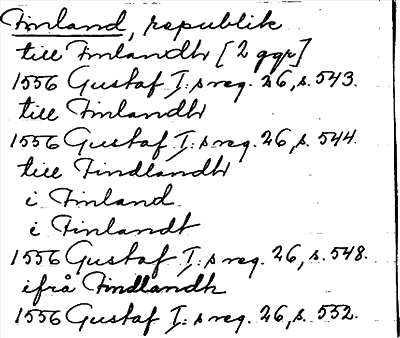 Finland, republik
till Finlandh [2 ggr]
1556 Gustaf I:s reg. 26, s. 543.
till Finlandh
1556 Gustaf I:s reg. 26, s. 544.
till Findlandh
i Finland
i Finlandt
1556 Gustaf I:s reg. 26, s. 548.
ifrå Findlandh
1556 Gustaf I:s reg. 26, s. 552.